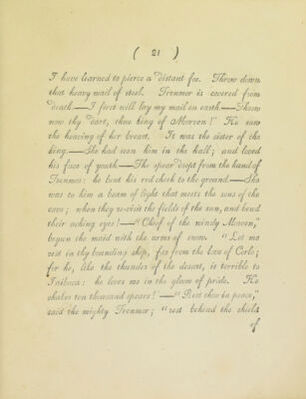 ( 21 )
I have learned to pierce a distant foe. Throw down
that heavy mail of steel. Trenmor is covered from
death.—I first will lay my mail on earth.—Throw
now thy dart, thou king of Morven!" He saw
the heaving of her breast. It was the sister of the
king.—She had seen him in the hall; and loved
his face of youth.—The spear dropt from the hand of
Trenmor: he bent his red cheek to the ground.—She
was to him a beam of light that meets the sons of the
cave; when they re-visit the fields of the sun, and bend
their aching eyes!—"Chief of the windy Morven,"
begun the maid with the arms of snow. "Let me
rest in thy bounding ship, far from the love of Corlo;
for he, like the thunder of the desert, is terrible to
Inibaca: he loves me in the gloom of pride. He
shakes ten thousand spears!—"Rest thou in peace,"
said the mighty Trenmor; "rest behind the shield
of